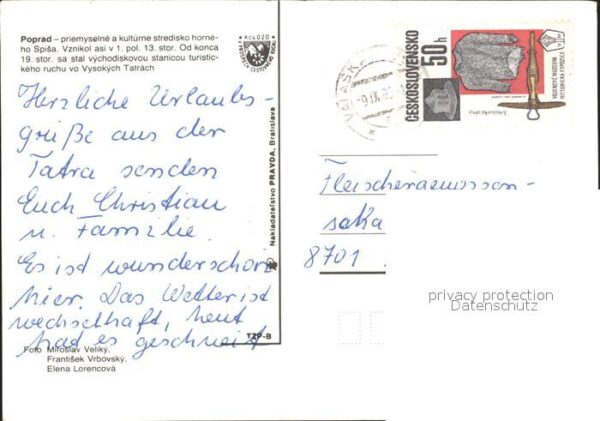 Poprad – priemyselné a kultúrne stredisko horné-
ho Spiša. Vznikol asi v 1. pol. 13. stor. Od konca
19. stor. sa stal východiskovou stanicou turistic-
kého ruchu vo Vysokých Tatrách
Kčs 0,20
Herzliche Urlaubs-
grüße aus der
Tatra senden
Euch Christian
u. Familie.
Es ist wunderschön
hier. Das Wetter ist
wechselhaft, heut
had es geschneit
Foto Miroslav Veliký,
František Vrbovský,
Elena Lorencová
TZP-B
Nakladateľstvo PRAVDA, Bratislava
ČESKOSLOVENSKO
50h
-9.IX.
Fleischeraemssen-
saka
8701
privacy protection
Datenschutz